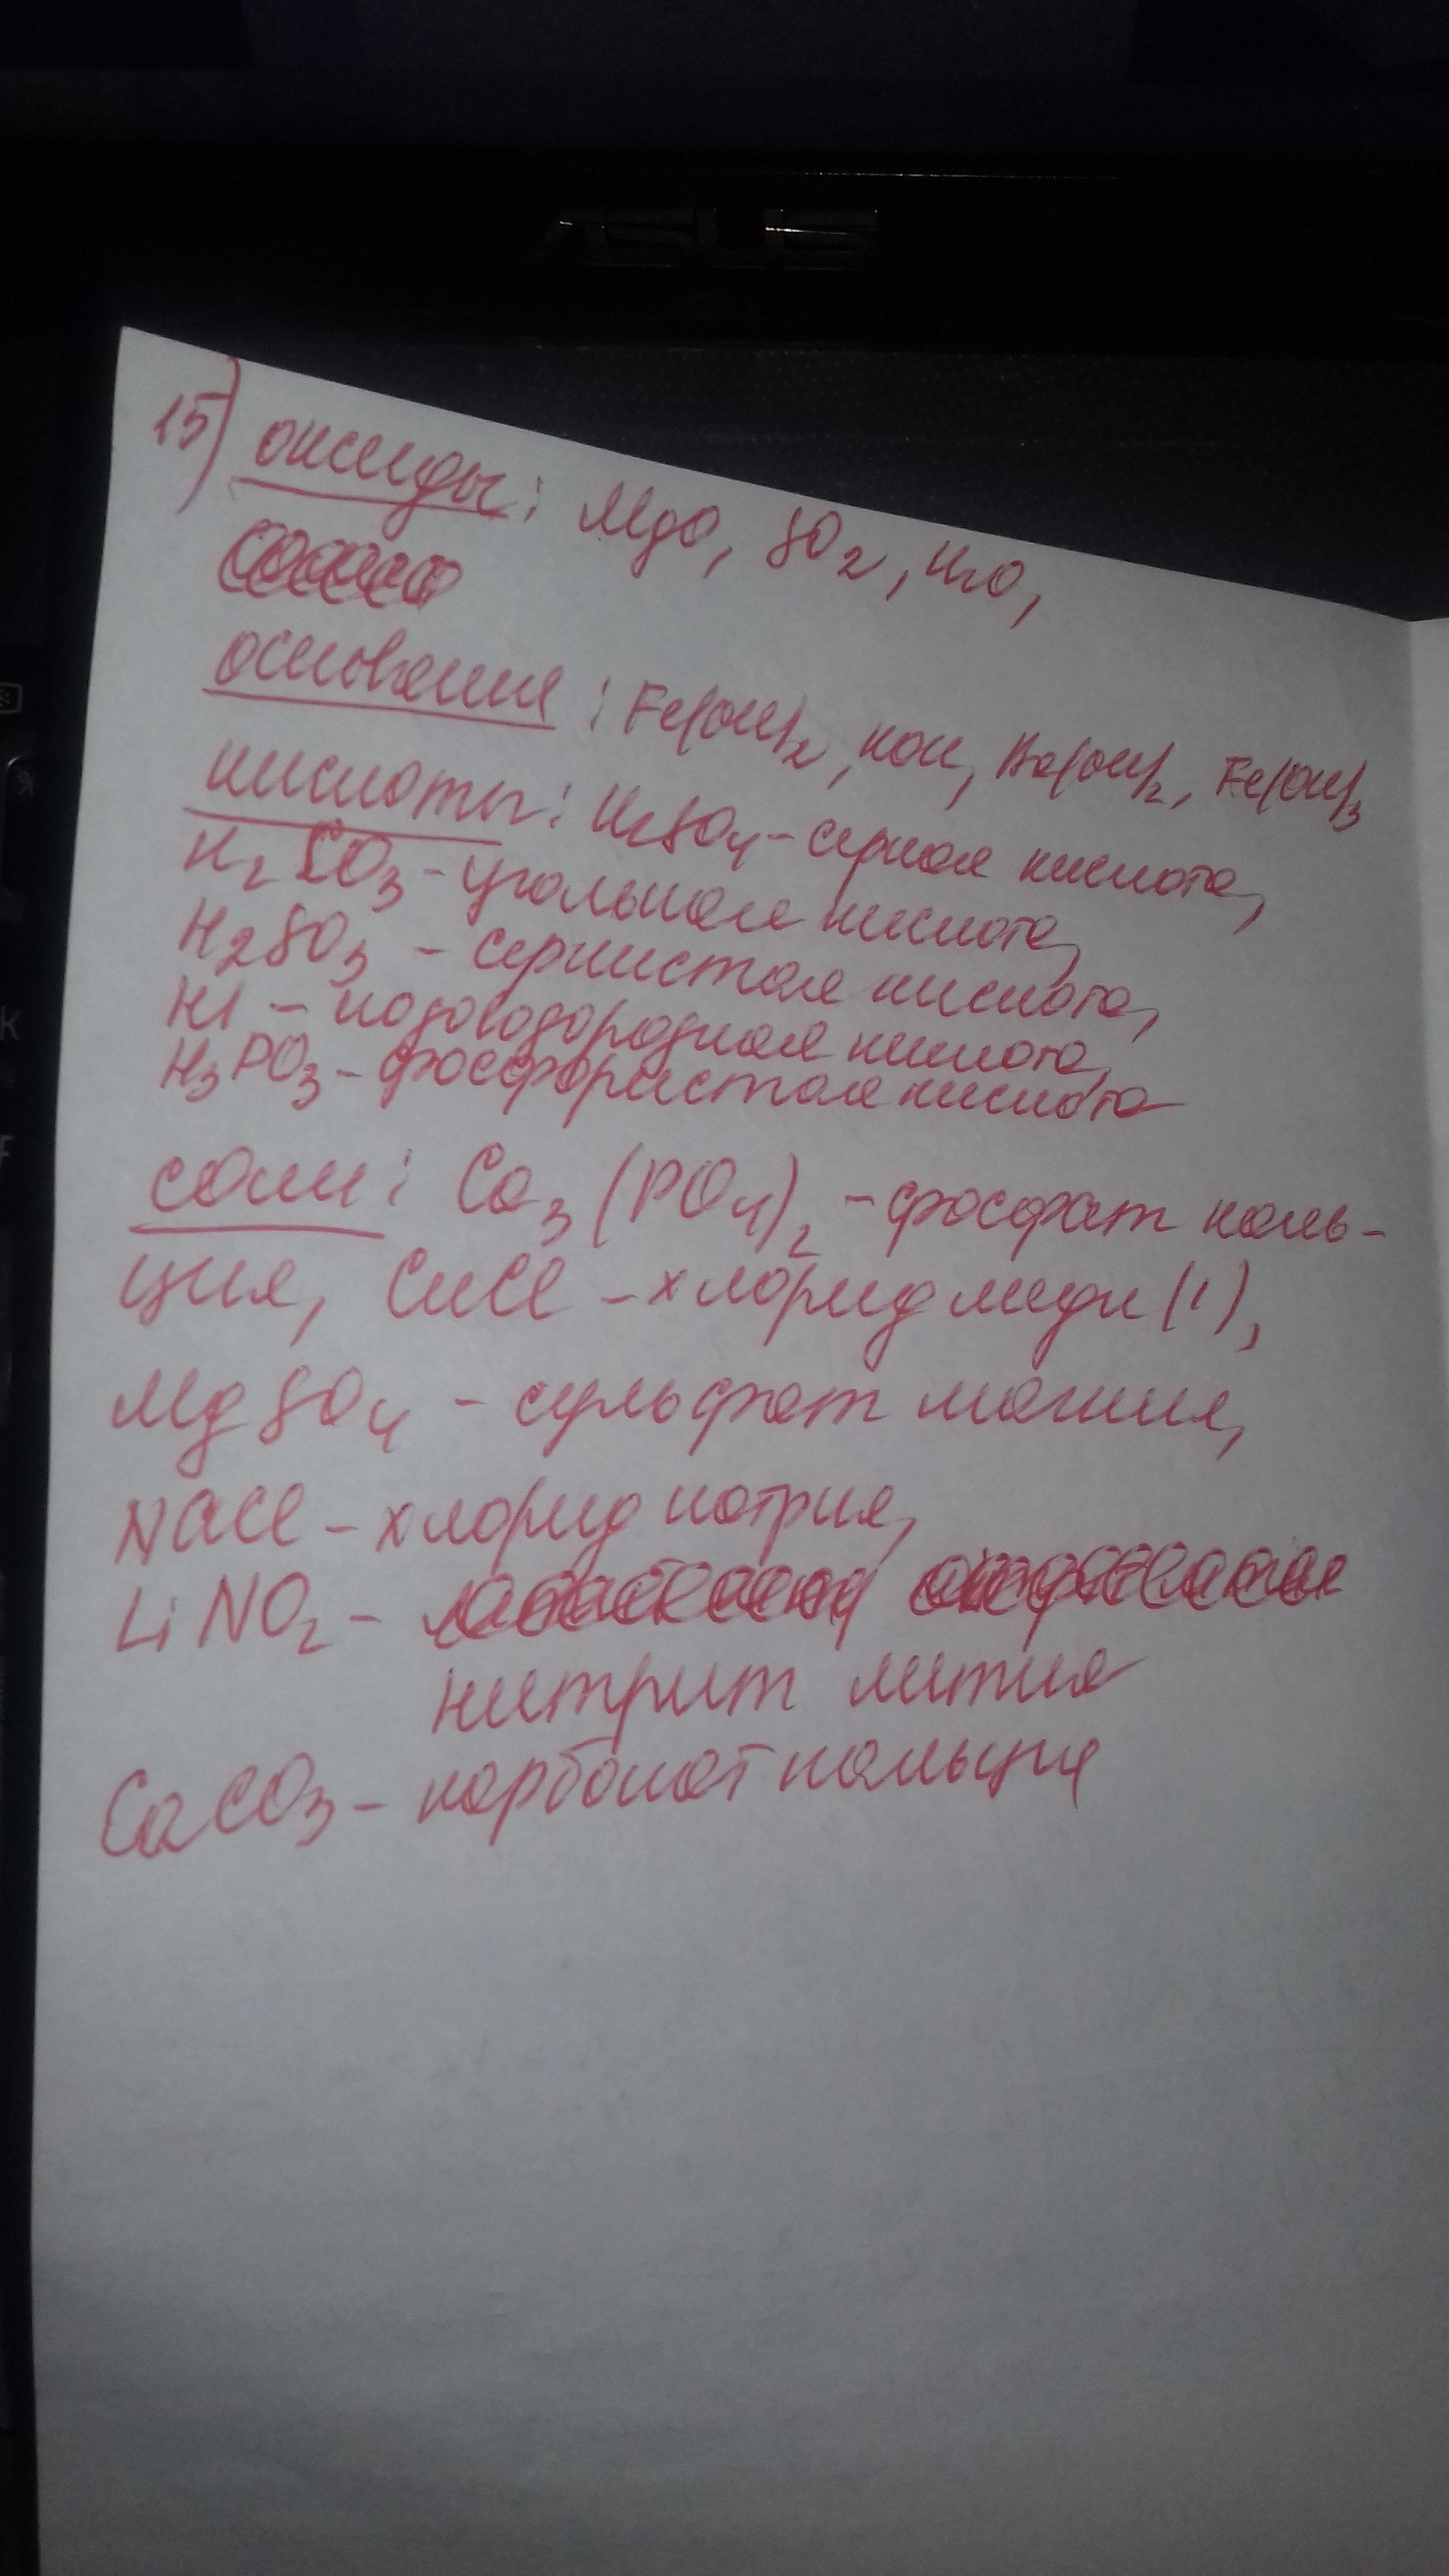 15) оксиды: MgO, SO2, H2O,
основания: Fe(OH)2, KOH, Ba(OH)2, Fe(OH)3
кислоты: H2SO4 - серная кислота,
H2CO3 - угольная кислота,
H2SO3 - сернистая кислота,
HI - иодоводородная кислота,
H3PO3 - фосфористая кислота
соли: Ca3(PO4)2 - фосфат каль-
ция, CuCl - хлорид меди (I),
MgSO4 - сульфат магния,
NaCl - хлорид натрия,
LiNO2 -
нитрит лития
CaCO3 - карбонат кальция